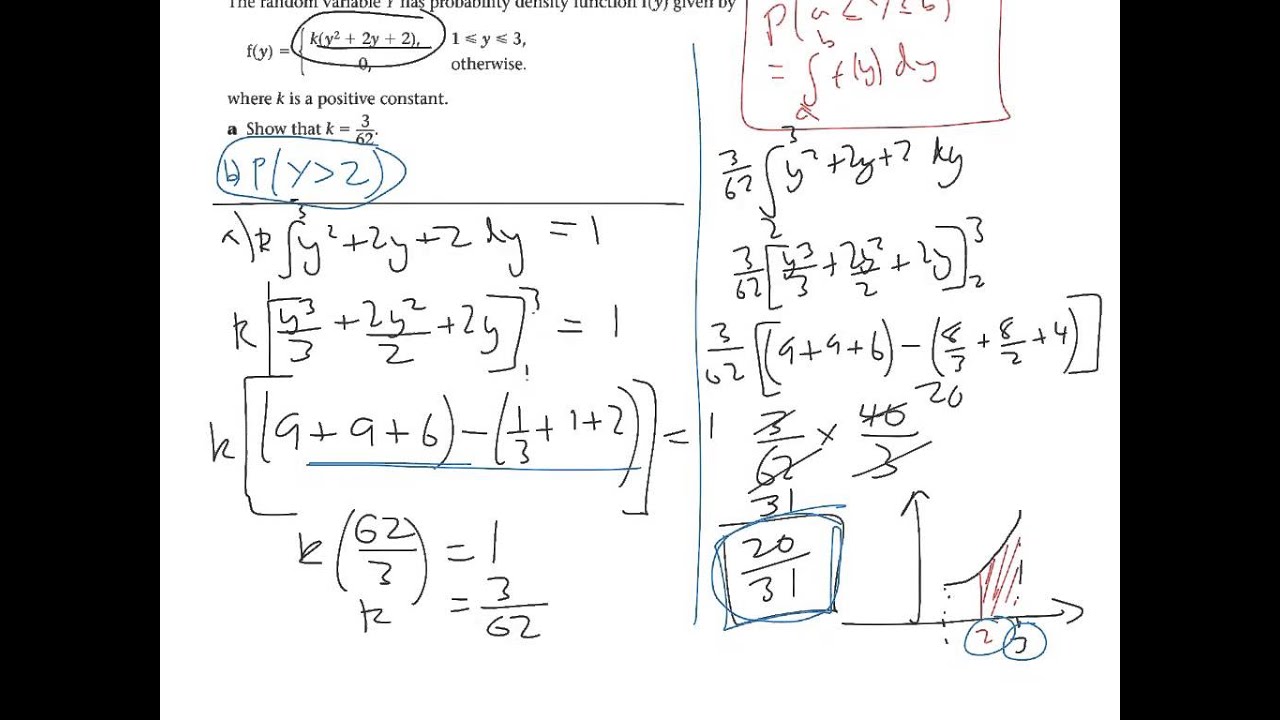 The random variable Y has probability density function f(y) given by
f(y) = { k(y² + 2y + 2), 1 ⩽ y ⩽ 3,
0, otherwise.
where k is a positive constant.
a Show that k = 3/62.
b) P(Y>2)
a) k ∫³ y² + 2y + 2 dy = 1
k [y³/3 + 2y²/2 + 2y]₁³ = 1
k [(9 + 9 + 6) − (1/3 + 1 + 2)] = 1
k (62/3) = 1
k = 3/62
P(a ≤ Y ≤ b)
= ∫ₐᵇ f(y) dy
3/62 ∫₂³ y² + 2y + 2 dy
3/62 [y³/3 + 2y²/2 + 2y]₂³
3/62 [(9 + 9 + 6) − (8/3 + 8/2 + 4)]
20
3/62 × 40/3
31
20/31
2 3